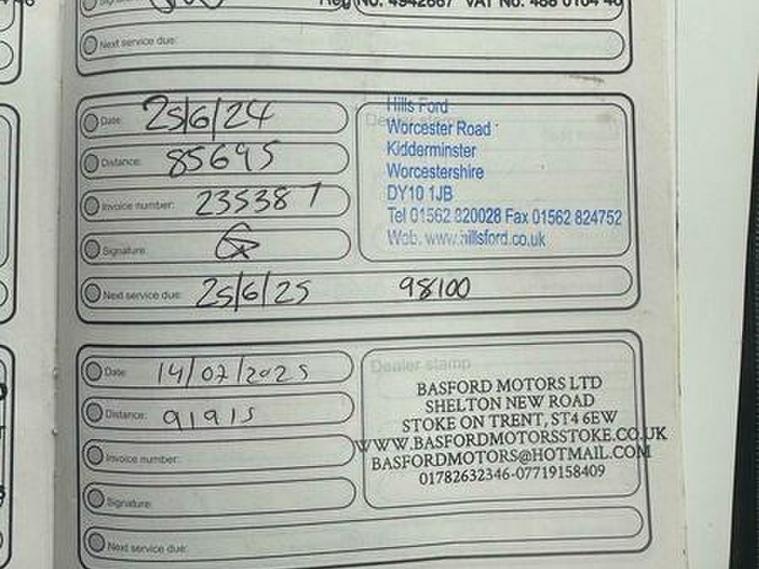 Reg No. 4942667 VAT No. 488 0104 46
Next service due:
Date: 25/6/24
Distance: 85695
Invoice number: 235387
Signature:
Next service due: 25/6/25 98100
Dealer stamp
Hills Ford
Worcester Road
Kidderminster
Worcestershire
DY10 1JB
Tel 01562 820028 Fax 01562 824752
Web. www.hillsford.co.uk
Date: 14/02/2025
Distance: 91915
Invoice number:
Signature:
Next service due:
Dealer stamp
BASFORD MOTORS LTD
SHELTON NEW ROAD
STOKE ON TRENT, ST4 6EW
WWW.BASFORDMOTORSSTOKE.CO.UK
BASFORDMOTORS@HOTMAIL.COM
01782632346-07719158409